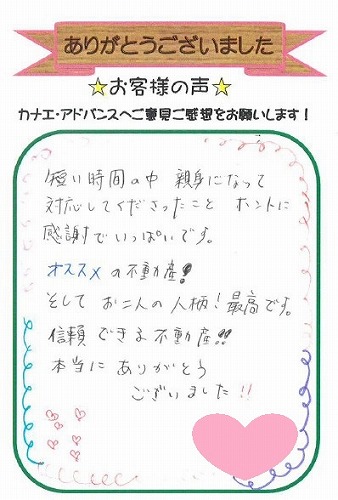 ありがとうございました
☆お客様の声☆
カナエ・アドバンスへご意見ご感想をお願いします！
短い時間の中 親身になって
対応してくださったこと ホントに
感謝でいっぱいです。
オススメの不動産！
そして お二人の人柄！最高です。
信頼できる不動産!!
本当に ありがとう
ございました!!